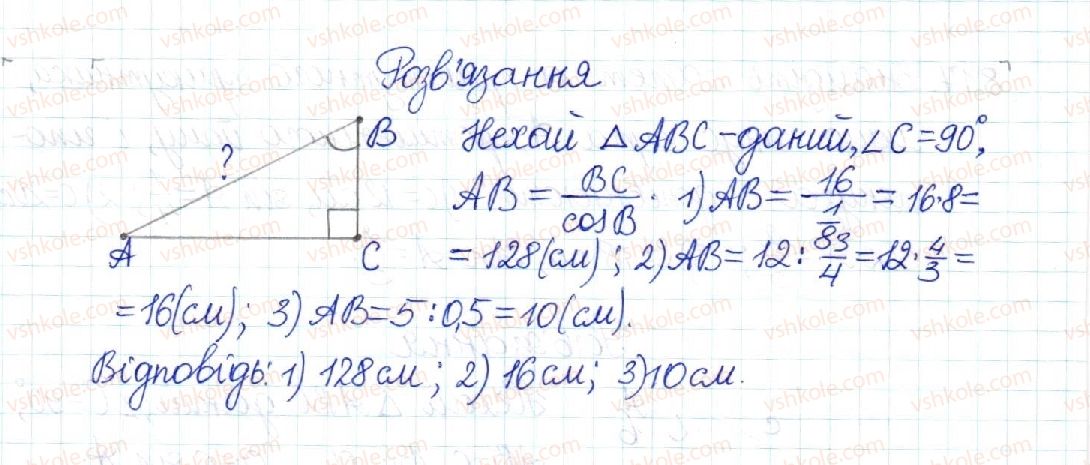 Розв'язання
B
?
A
C
Нехай △ABC – даний, ∠C = 90°,
AB = BC/cosB. 1) AB = 16/(1/8) = 16·8 =
= 128(см); 2) AB = 12 : 3/4 = 12 · 4/3 =
= 16(см); 3) AB = 5 : 0,5 = 10 (см).
Відповідь: 1) 128 см; 2) 16 см; 3) 10 см.